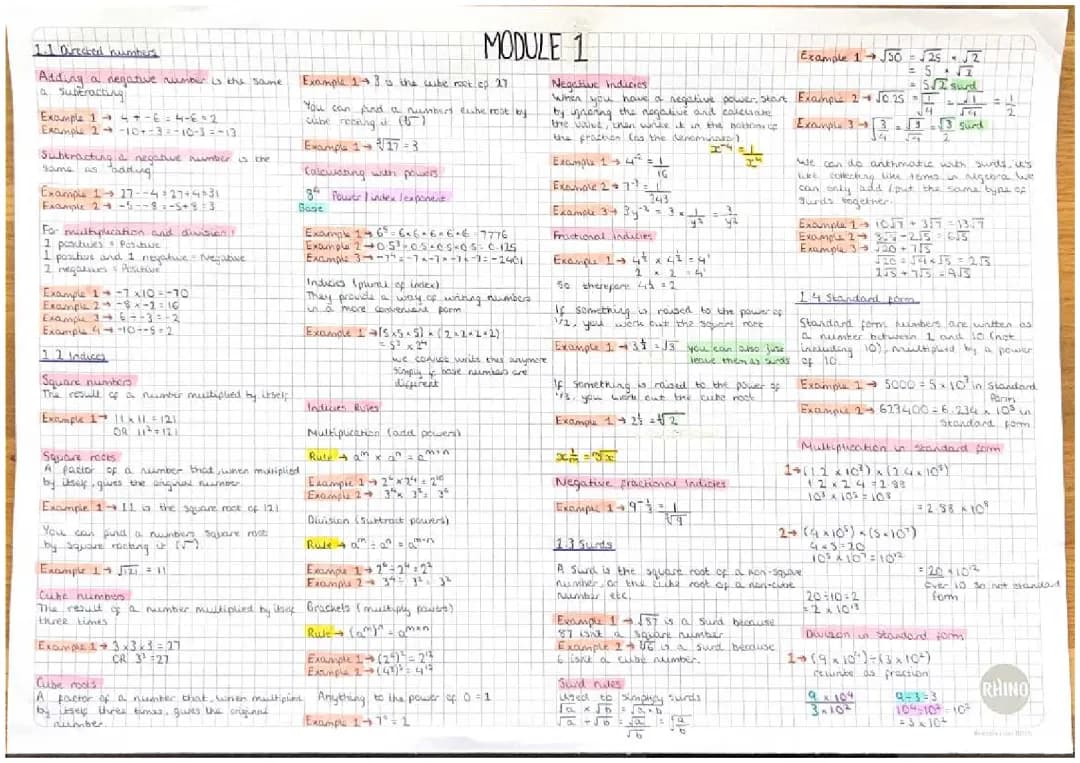 MODULE 1
1.1 Directed numbers
Adding a negative number is the same
a subtracting
Example 1 → 4 + -6 = 4-6 = 2
Example 2 → -10+-3 = -10-3 = -13
Subtracting a negative number is the
same as adding
Example 1 → 27 - -4 = 27+4 = 31
Example 2 → -5 - -8 = -5+8 = 3
For multiplication and division:
2 positives = Positive
1 positive and 1 negative = Negative
2 negatives = Positive
Example 1 → -7 × 10 = -70
Example 2 → -8 × -2 = 16
Example 3 → 6 ÷ -3 = -2
Example 4 → -10 ÷ -5 = 2
1.2 Indices
Square numbers
The result of a number multiplied by itself
Example 1 → 11 × 11 = 121
OR 11² = 121
Square roots
A factor of a number that, when multiplied
by itself, gives the original number
Example 1 → 11 is the square root of 121
You can find a numbers square root
by square rooting it (√)
Example 1 → √121 = 11
Cube numbers
The result of a number multiplied by itself
three times
Example 1 → 3 × 3 × 3 = 27
OR 3³ = 27
Cube roots
A factor of a number that, when multiplied
by itself three times, gives the original
number.
Example 1 → 3 is the cube root of 27
You can find a numbers cube root by
cube rooting it (∛)
Example 1 → ∛27 = 3
Calculating with powers
8⁴ Power / index / exponent
Base
Example 1 → 6⁵ = 6×6×6×6×6 = 7776
Example 2 → 0.5³ = 0.5×0.5×0.5 = 0.125
Example 3 → -7⁴ = -7×-7×-7×-7 = -2401
Indices (plural of index)
They provide a way of writing numbers
in a more convenient form
Example 1 → (5×5×5) × (2×2×2×2)
= 5³ × 2⁴
we cannot write this anymore
simply if base numbers are
different
Indices Rules
Multiplication (add powers)
Rule → aᵐ × aⁿ = aᵐ⁺ⁿ
Example 1 → 2⁶ × 2⁴ = 2¹⁰
Division (subtract powers)
Rule →
Example 1 → 2⁶ ÷ 2⁴ = 2²
Example 2 → 3⁴ ÷ 3² = 3²
Brackets (multiply powers)
Rule → (aᵐ)ⁿ = aᵐˣⁿ
Example 1 →
Example 1 →
Anything to the power of 0 = 1
Example 1 → 7⁰ = 1
Negative Indicies
When you have a negative power, start
by ignoring the negative and calculate
the value, then write it in the bottom of
the fraction (as the denominator)
x⁻⁴ = 1/x⁴
Example 1 → 4⁻² = 1/16
Example 2 → 7⁻³ = 1/343
Example 3 → 3y⁻² = 3 × 1/y² = 3/y²
Fractional Indicies
Example 1 → 4^½ × 4^½ = 4¹
2 × 2 = 4¹
so therefore 4^½ = 2
If something is raised to the power of
1/2, you work out the square root
Example 1 → 3^½ = √3 you can also just
leave them as surds
If something is raised to the power of
1/3, you work out the cube root
Example 1 → 2^⅓ = ∛2
x^1/m = ᵐ√x
Negative fractional indicies
Example 1 → 9^-⅓ = 1/∛9
1.3 Surds
A Surd is the square root of a non-square
number, or the cube root of a non-cube
number etc.
Example 1 → √87 is a surd because
87 isnt a square number
Example 2 → ∛6 is a surd because
6 isnt a cube number.
Surd rules
Used to simplify surds
√a × √b = √a×b
√a ÷ √b = √a/√b = √a/b
Example 1 → √50 = √25 × √2
= 5 × √2
= 5√2 surd
Example 2 → √0.25 = √1/4 = √1/√4 = 1/2
Example 3 → √3/4 = √3/√4 = √3/2 surd
We can do arithmatic with surds, it's
like collecting like terms in algebra. We
can only add / put the same type of
surds together.
Example 1 → 10√7 + 3√7 = 13√7
Example 2 → 8√5 - 2√5 = 6√5
Example 3 → √20 + 7√5
√20 = √4 × √5 = 2√5
2√5 + 7√5 = 9√5
1.4 Standard form
Standard form numbers are written as
a number between 1 and 10 (not
including 10), multiplied by a power
of 10.
Example 1 → 5000 = 5 × 10³ in standard
form
Example 2 → 623400 = 6.234 × 10⁵ in
standard form
Multiplication in standard form
1→ (1.2 × 10³) × (2.4 × 10⁵)
1.2 × 2.4 = 2.88
10³ × 10⁵ = 10⁸
= 2.88 × 10⁸
2→ (4 × 10⁵) × (5 × 10⁷)
4 × 5 = 20
10⁵ × 10⁷ = 10¹²
= 20 × 10¹²
over 10 so not standard
form
20 ÷ 10 = 2
= 2 × 10¹³
Division in standard form
1→ (9 × 10⁴) ÷ (3 × 10²)
rewrite as fraction
9 × 10⁴ 9÷3 = 3
3 × 10² 10⁴÷10² = 10²
= 3 × 10²
RHINO